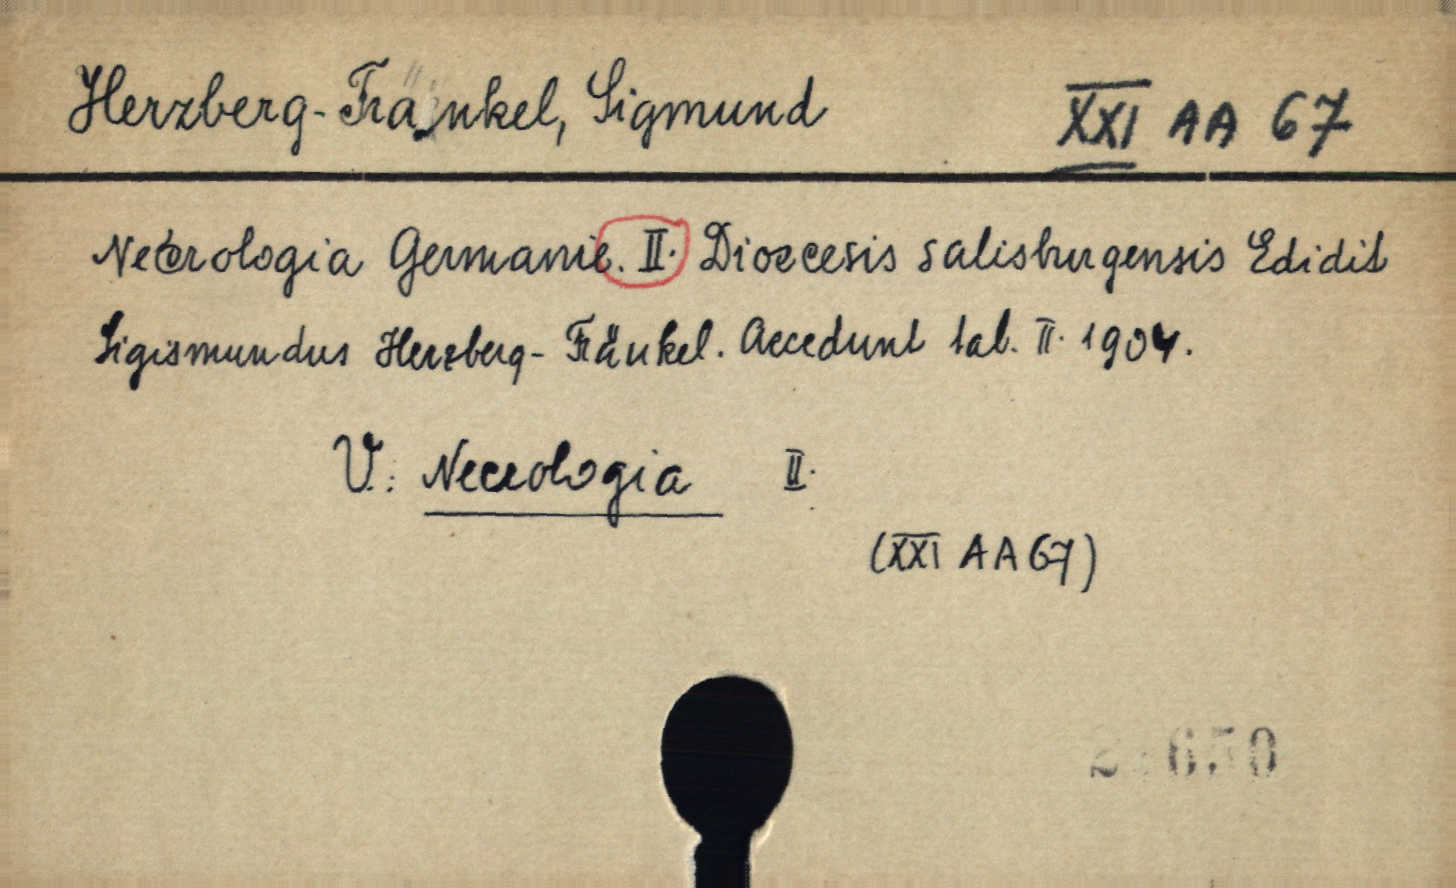 Herzberg-Fränkel, Sigmund XXI AA 67
Necrologia Germanie. II. Dioecesis Salisburgensis Edidit
Sigismundus Herzberg-Fränkel. Accedunt tab. II. 1904.
V.: Necrologia II.
(XXI AA 67)